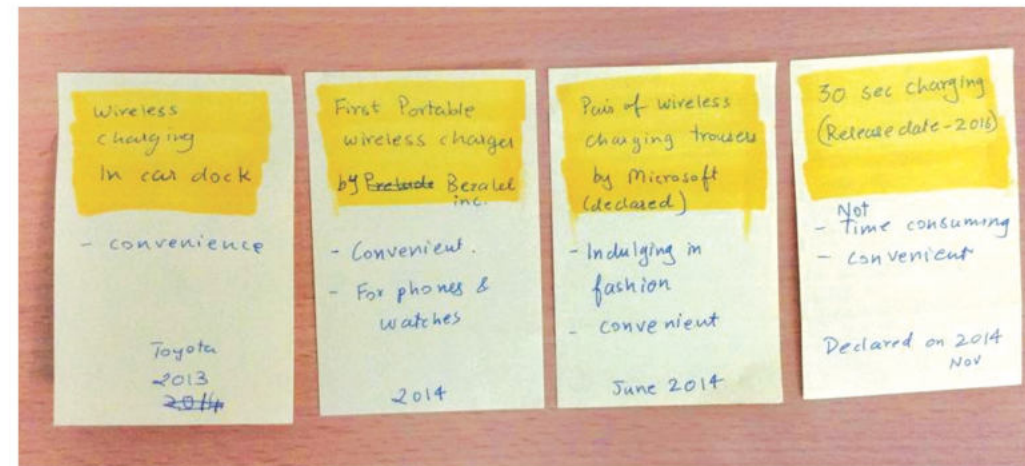 Wireless
charging
In car dock
- convenience
Toyota
2013
2014
First Portable
wireless charger
by Prelude Bezalel
inc.
- Convenient.
- For phones &
watches
2014
Pair of wireless
charging trousers
by Microsoft
(declared)
- Indulging in
fashion
- convenient
June 2014
30 sec charging
(Release date-2016)
Not
- Time consuming
- convenient
Declared on 2014
Nov